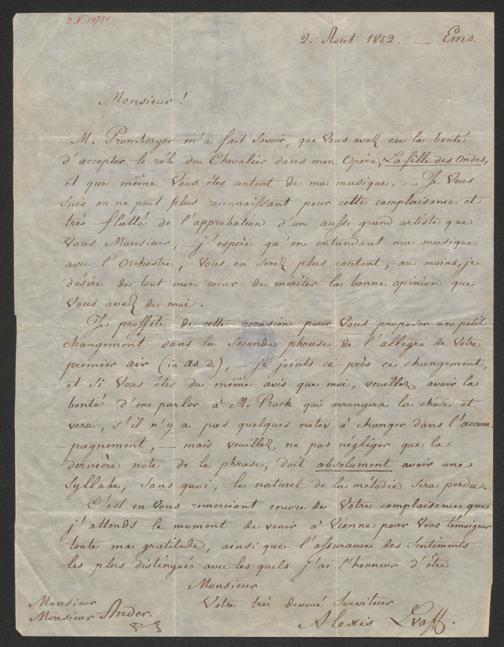 2. Aout 1852. — Ems.
Monsieur!
M. Promberger m'a fait savoir, que Vous avez eu la bonté
d'accepter le rôle du Chevalier dans mon Opera, La fille des Ondes,
et que même Vous êtes content de ma musique. — Je Vous
suis on ne peut plus reconnaissant pour cette complaisance et
très flatté de l'approbation d'un aussi grand artiste que
Vous Monsieur, — j'espère qu'en entendant ma musique
avec l'Orchestre, Vous en serez plus content, au moins, je
désire de tout mon coeur de mériter la bonne opinion que
Vous avez de moi.
Je proffite de cette occasion pour Vous proposer un petit
changement dans la seconde phrase de l'allegro de Votre
premier air (in as d.), — je joints ci près ce changement,
et si Vous êtes du même avis que moi, veuillez avoir la
bonté d'en parler à M. Proch qui arrangera la chose et
vera, s'il n'y a pas quelques notes à changer dans l'accom-
pagnement, — mais veuillez ne pas négliger que la
dernière note de la phrase, doit absolument avoir une
syllabe, sans quoi, le naturel de la mélodie sera perdu.
C'est en Vous remerciant encore de Votre complaisance que
j'attends le moment de venir à Vienne pour Vous témoigner
toute ma gratitude, ainsi que l'assurance des sentiments
les plus distingués avec les quels j'ai l'honneur d'être
Monsieur
Votre très devoué serviteur
Alexis Lvoff.
Monsieur
Monsieur Ander.